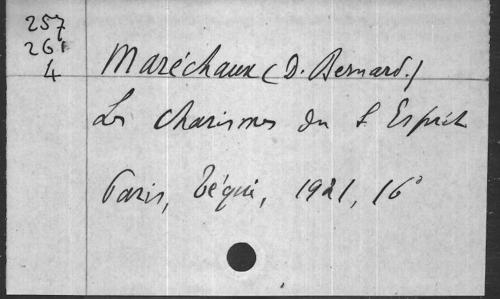 257
261
4
Maréchaux (D. Bernard.)
Les charismes du S Esprit
Paris, Téqui, 1921, 16°